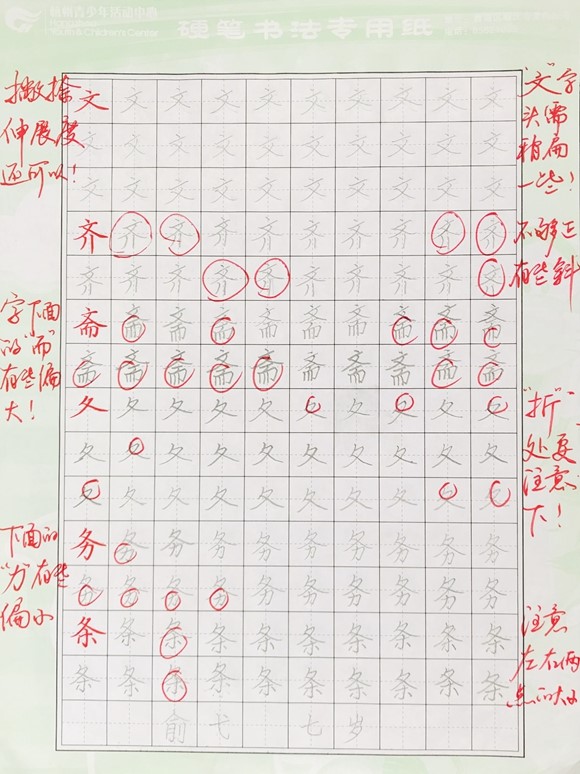 杭州青少年活动中心
Youth & Children's Center
硬笔书法专用纸
撇捺
伸展度
还可以！
"文"字
头需
稍扁
一些！
文文文文文文文文文文
文文文文文文文文文文
文文文文文文文文文文
齐齐齐齐齐齐齐齐齐齐
齐齐齐齐齐齐齐齐齐齐
不够正
有些斜
字下面
的"而"
有些偏
大！
斋斋斋斋斋斋斋斋斋斋
斋斋斋斋斋斋斋斋斋斋
夂夂夂夂夂夂夂夂夂夂
夂夂夂夂夂夂夂夂夂夂
夂夂夂夂夂夂夂夂夂夂
"折"
处要
注意
下！
下面的
"力"有些
偏小
务务务务务务务务务务
务务务务务务务务务务
条条条条条条条条条条
条条条条条条条条条条
注意
左右两
点的大小
俞弋 七岁